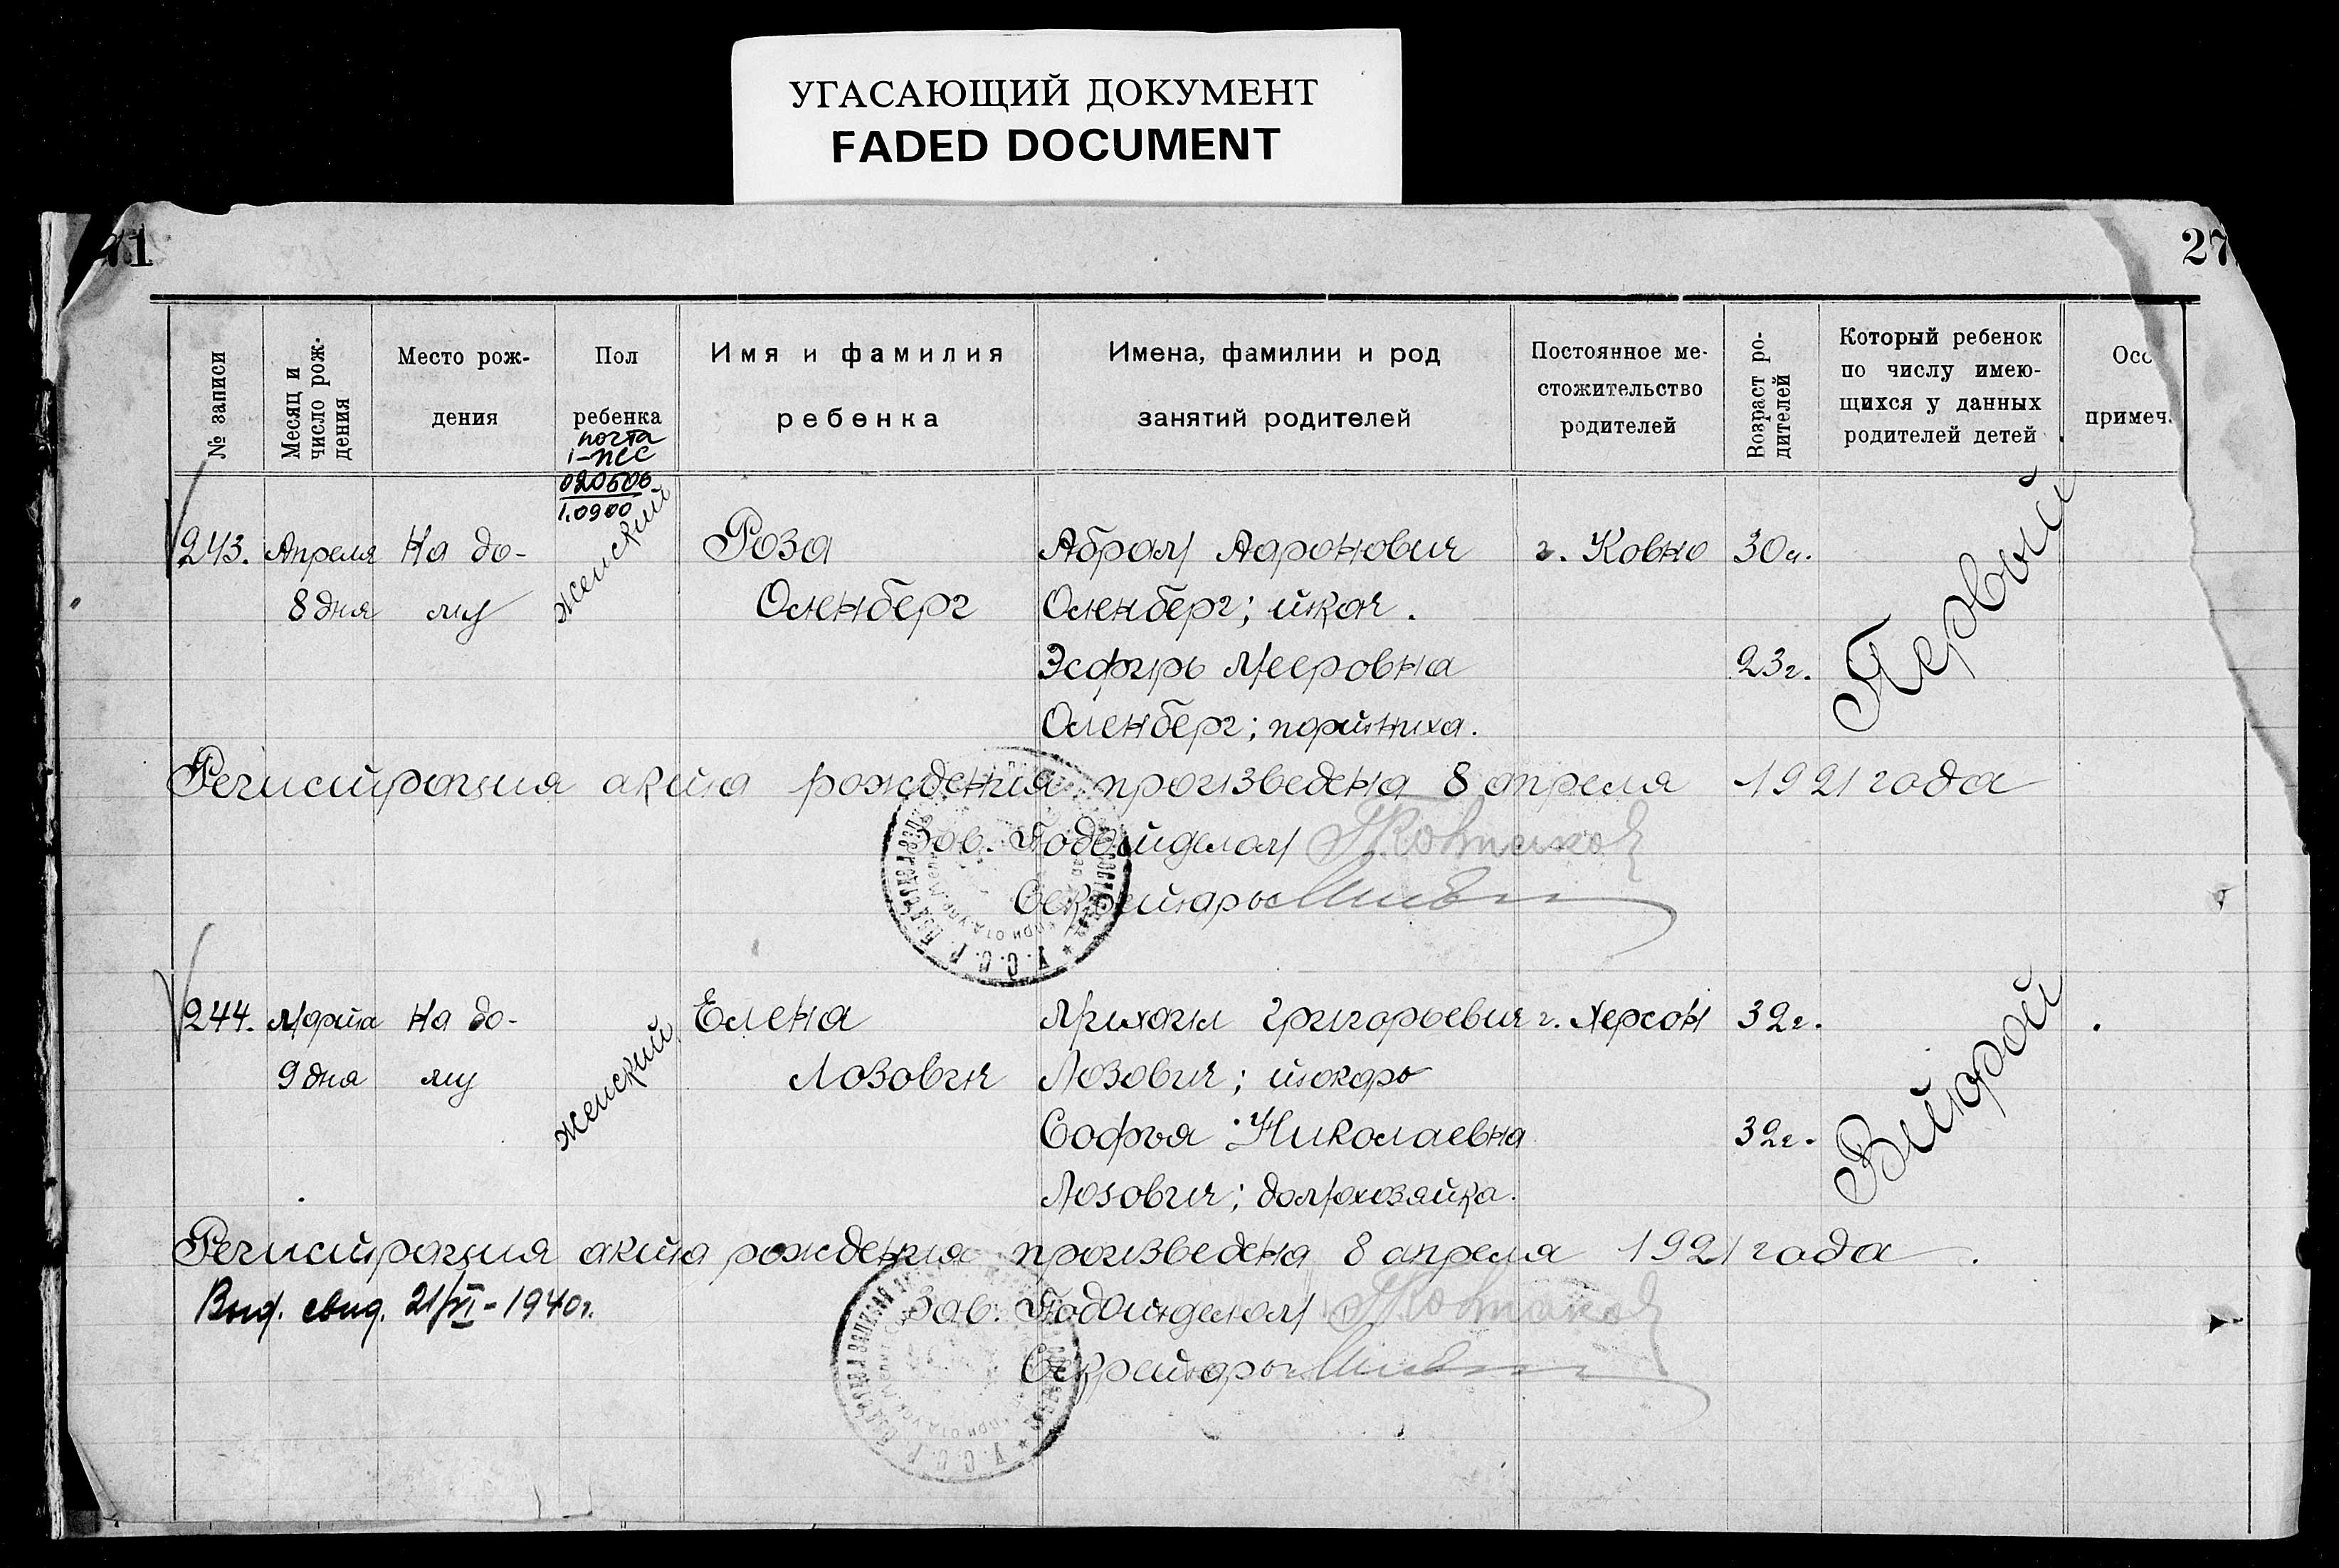 УГАСАЮЩИЙ ДОКУМЕНТ
FADED DOCUMENT
71
27
№ записи
Месяц и
число рож-
дения
Место рож-
дения
Пол
ребенка
Имя и фамилия
ребенка
Имена, фамилии и род
занятий родителей
Постоянное ме-
стожительство
родителей
Возраст ро-
дителей
Который ребенок
по числу имею-
щихся у данных
родителей детей
Осо
примеч.
почта
020600
1.0900
243. Апреля На до- женский Роза Абрам Ааронович г. Ковно 30л. Первый
8 дня му Оленберг Оленберг; ткач.
Эсфирь Мееровна 23г.
Оленберг; портниха.
Регистрация акта рождения произведена 8 апреля 1921 года
Зав. Подотделом
Секретарь
У.С.С.Р.
244. Марта На до- женский Елена Михаил Григорьевич г. Херсон 32г. Второй
9 дня му Лозович Лозович; токарь
Софья Николаевна 32г.
Лозович; домохозяйка.
Регистрация акта рождения произведена 8 апреля 1921 года.
Выд. свид. 21/VI-1940г. Зав. Подотделом
Секретарь
У.С.С.Р.